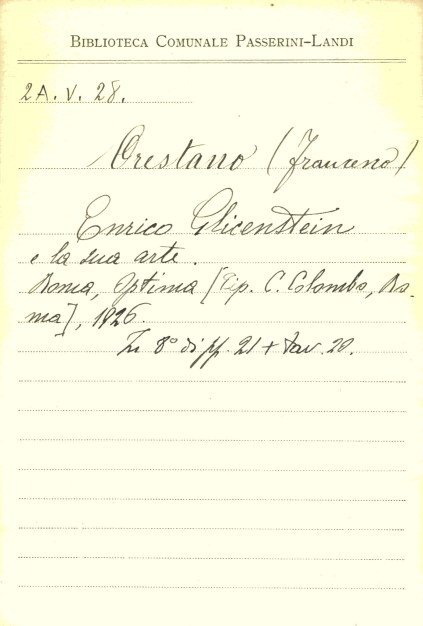 BIBLIOTECA COMUNALE PASSERINI-LANDI
2A. V. 28.
Orestano (Francesco)
Enrico Glicenstein
e la sua arte.
Roma, Optima [Tip. C. Colombo, Ro-
ma], 1926.
In 8° di pp. 21 + tav. 20.